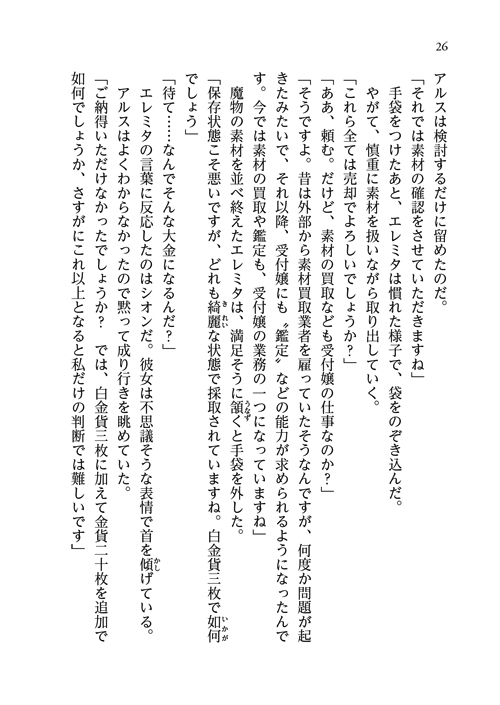 26
アルスは検討するだけに留めたのだ。
「それでは素材の確認をさせていただきますね」
手袋をつけたあと、エレミタは慣れた様子で、袋をのぞき込んだ。
やがて、慎重に素材を扱いながら取り出していく。
「これら全ては売却でよろしいでしょうか？」
「ああ、頼む。だけど、素材の買取なども受付嬢の仕事なのか？」
「そうですよ。昔は外部から素材買取業者を雇っていたそうなんですが、何度か問題が起
きたみたいで、それ以降、受付嬢にも〝鑑定〟などの能力が求められるようになったんで
す。今では素材の買取や鑑定も、受付嬢の業務の一つになっていますね」
魔物の素材を並べ終えたエレミタは、満足そうに頷くと手袋を外した。
「保存状態こそ悪いですが、どれも綺麗な状態で採取されていますね。白金貨三枚で如何
でしょう」
「待て……なんでそんな大金になるんだ？」
エレミタの言葉に反応したのはシオンだ。彼女は不思議そうな表情で首を傾げている。
アルスはよくわからなかったので黙って成り行きを眺めていた。
「ご納得いただけなかったでしょうか？　では、白金貨三枚に加えて金貨二十枚を追加で
如何でしょうか、さすがにこれ以上となると私だけの判断では難しいです」